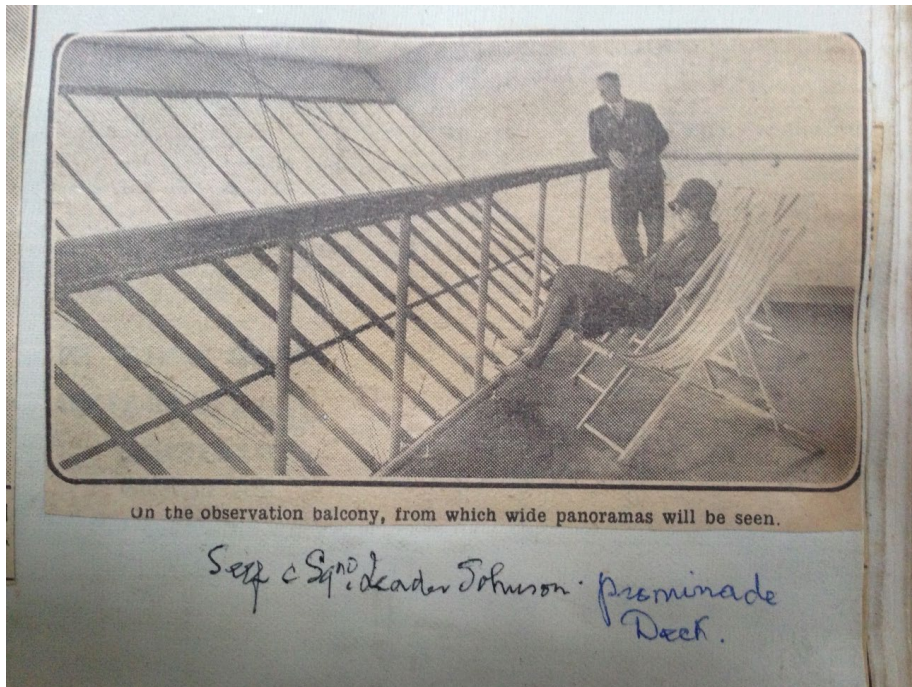 On the observation balcony, from which wide panoramas will be seen.
Self c Sqnᵈ. Leader Johnson. Prominade
Deck.